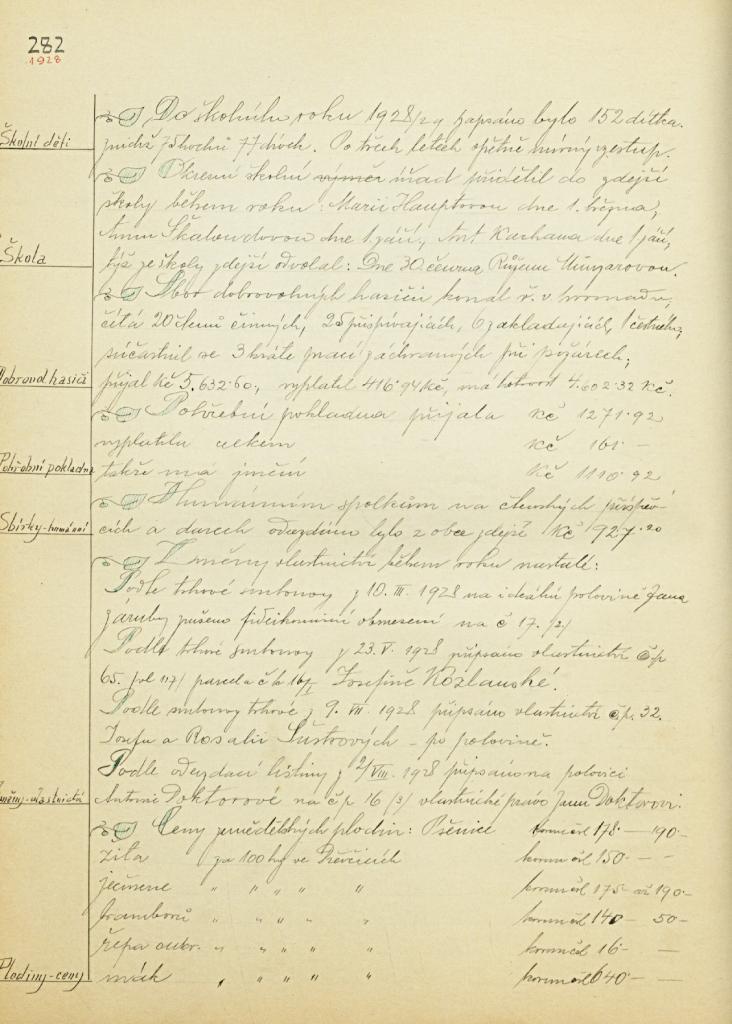 282
1928
Do školního roku 1928/29 zapsáno bylo 152 dítka.
Školní děti
z nichž 75 hochů 77 dívek. Po třech letech opětně mírný vzestup.
Okresní školní výměr úřad přidělil do zdejší
školy během roku: Marii Hauptovou dne 1. března,
Annu Škaloudovou dne 1 září, Ant. Kachana dne 1 září,
Škola
též ze školy zdejší odvolal: Dne 30. června Růženu Ungarovou.
Sbor dobrovolných hasičů konal ř. v. hromadu,
čítá 20 členů činných, 25 přispívajících, 6 zakládajících, 1 čestného,
súčastnil se 3 kráte prací záchranných při požárech;
Dobrovol hasiči
přijal Kč 5.632·60, vyplatil 416·94 Kč, má hotovost 4.602·32 Kč.
Pohřební pokladna přijala Kč 1271·92
vyplatila celkem Kč 161 –
Pohřební pokladna
takže má jmění Kč 1110·92
Humánním spolkům na členských příspěv-
Sbírky-humánní
cích a darech odvezdáno bylo z obce zdejší Kč 927·20
Změny vlastnictví během roku nastalé:
Podle trhové smlouvy z 10. III. 1928 na ideální polovině Jana
Záruby zrušeno fideikomisní obmezení na č 17. /2/
Podle trhové smlouvy z 23. V. 1928 připsáno vlastnictví čp
65. /vl 117/ parcela č k 16/I Josefině Kozlanské.
Podle smlouvy trhové z 9. VII. 1928 připsáno vlastnictví čp. 32.
Josefu a Rosalii Šustrových – po polovině.
Podle odevzdací listiny z 2/VIII. 1928 připsáno na polovici
Změny-vlastnictví
Antonie Doktorové na čp 16 /3/ vlastnické právo Janu Doktorovi.
Ceny zemědělských plodin: Pšenice korun čsl 178 – 190 –
žita za 100 kg ve korun čsl 150 – –
ječmene „ „ „ „ „ korun čsl 175 – až 190 –
bramborů „ „ „ „ „ korun čsl 140 – 50 –
řepa cukr. „ „ „ „ „ korun čsl 16 – –
Plodiny-ceny
mák „ „ „ „ „ korun čsl 640 – –